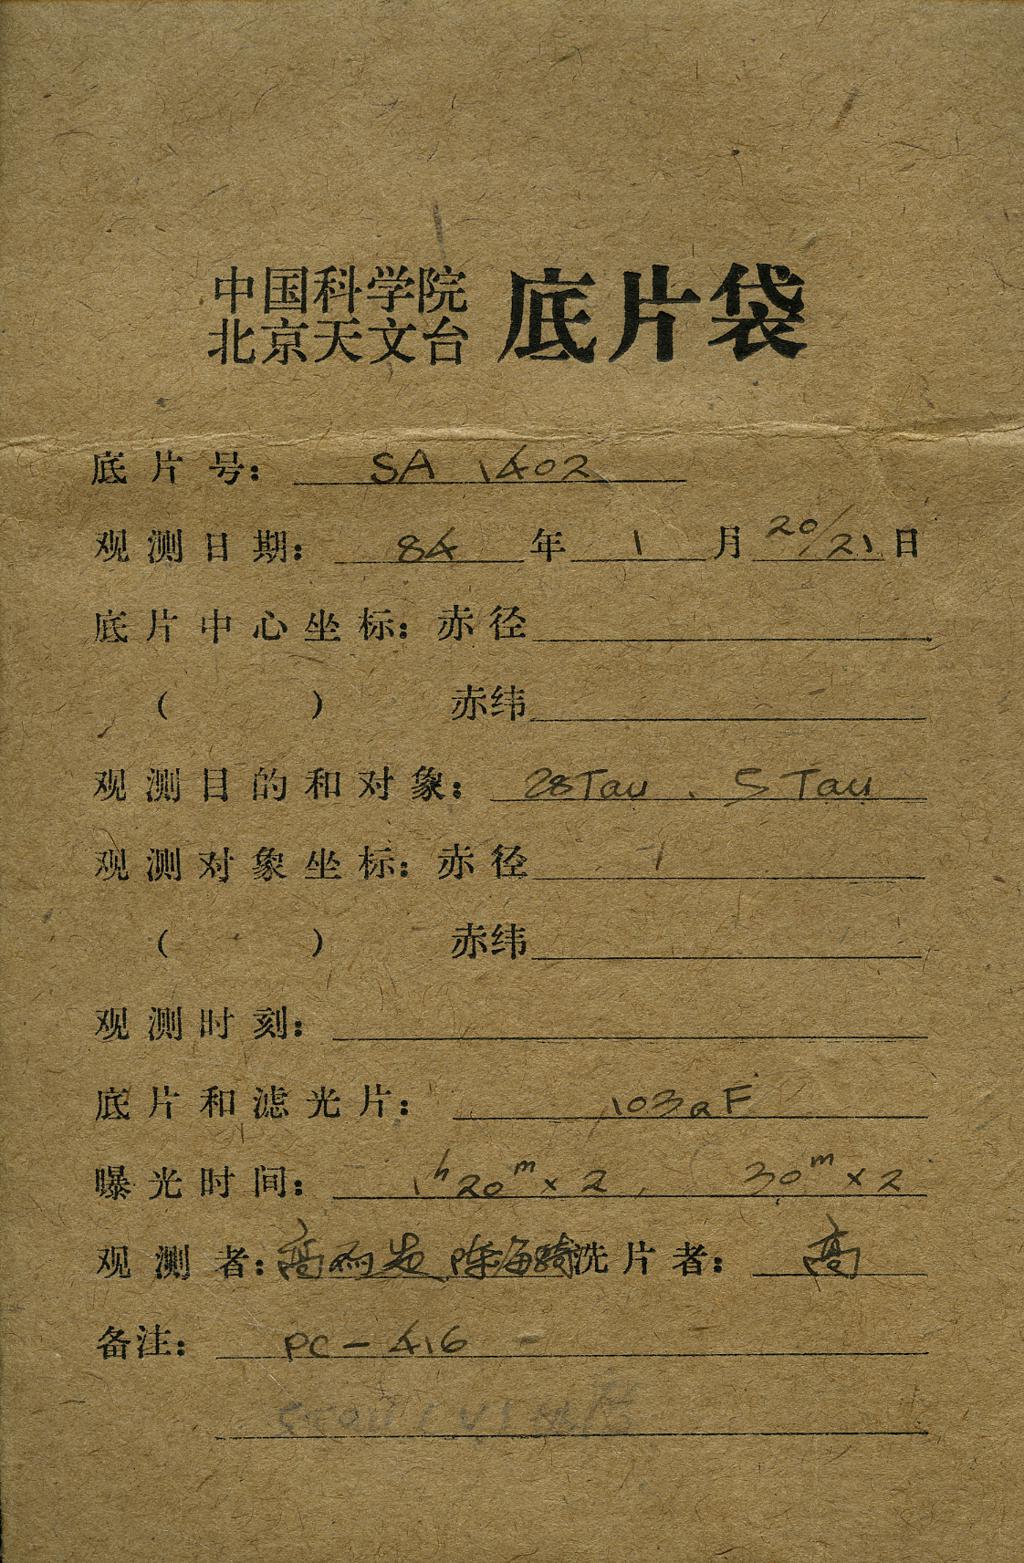 中国科学院
北京天文台 底片袋
底片号: SA 1402
观测日期: 84 年 1 月 20/21 日
底片中心坐标: 赤径
( ) 赤纬
观测目的和对象: 28 Tau . 5 Tau
观测对象坐标: 赤径
( ) 赤纬
观测时刻:
底片和滤光片: 103aF
曝光时间: 1h20m×2, 30m×2
观测者: 高 陈海 洗片者: 高
备注: PC-416